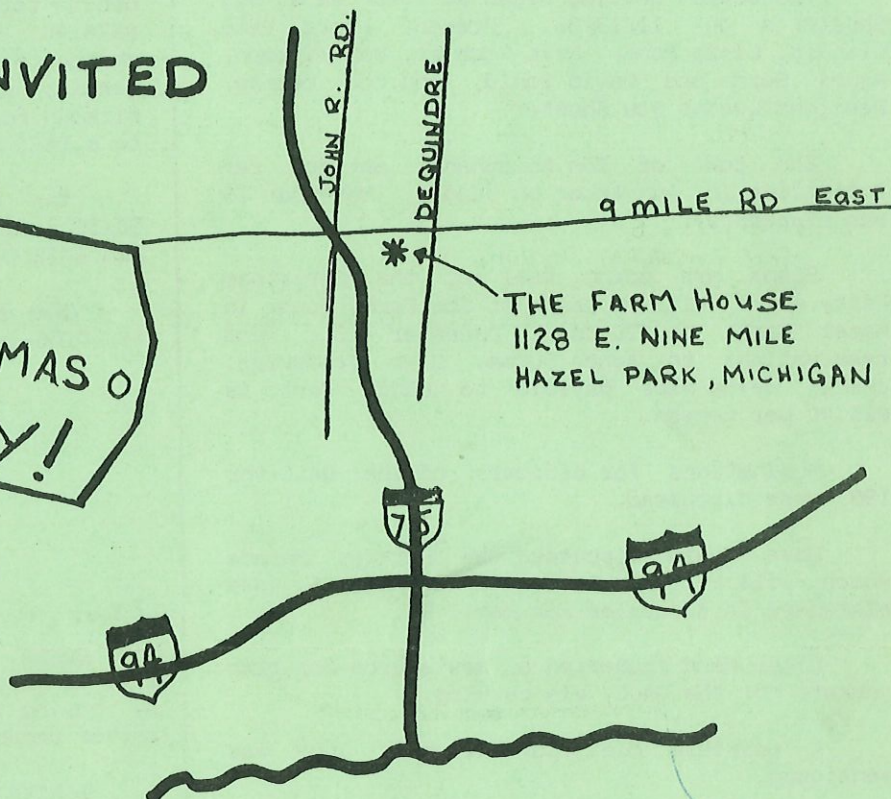 NVITED
JOHN R. RD.
DEQUINDRE
9 MILE RD EAST
THE FARM HOUSE
1128 E. NINE MILE
HAZEL PARK, MICHIGAN
MAS
Y!
75
94
94